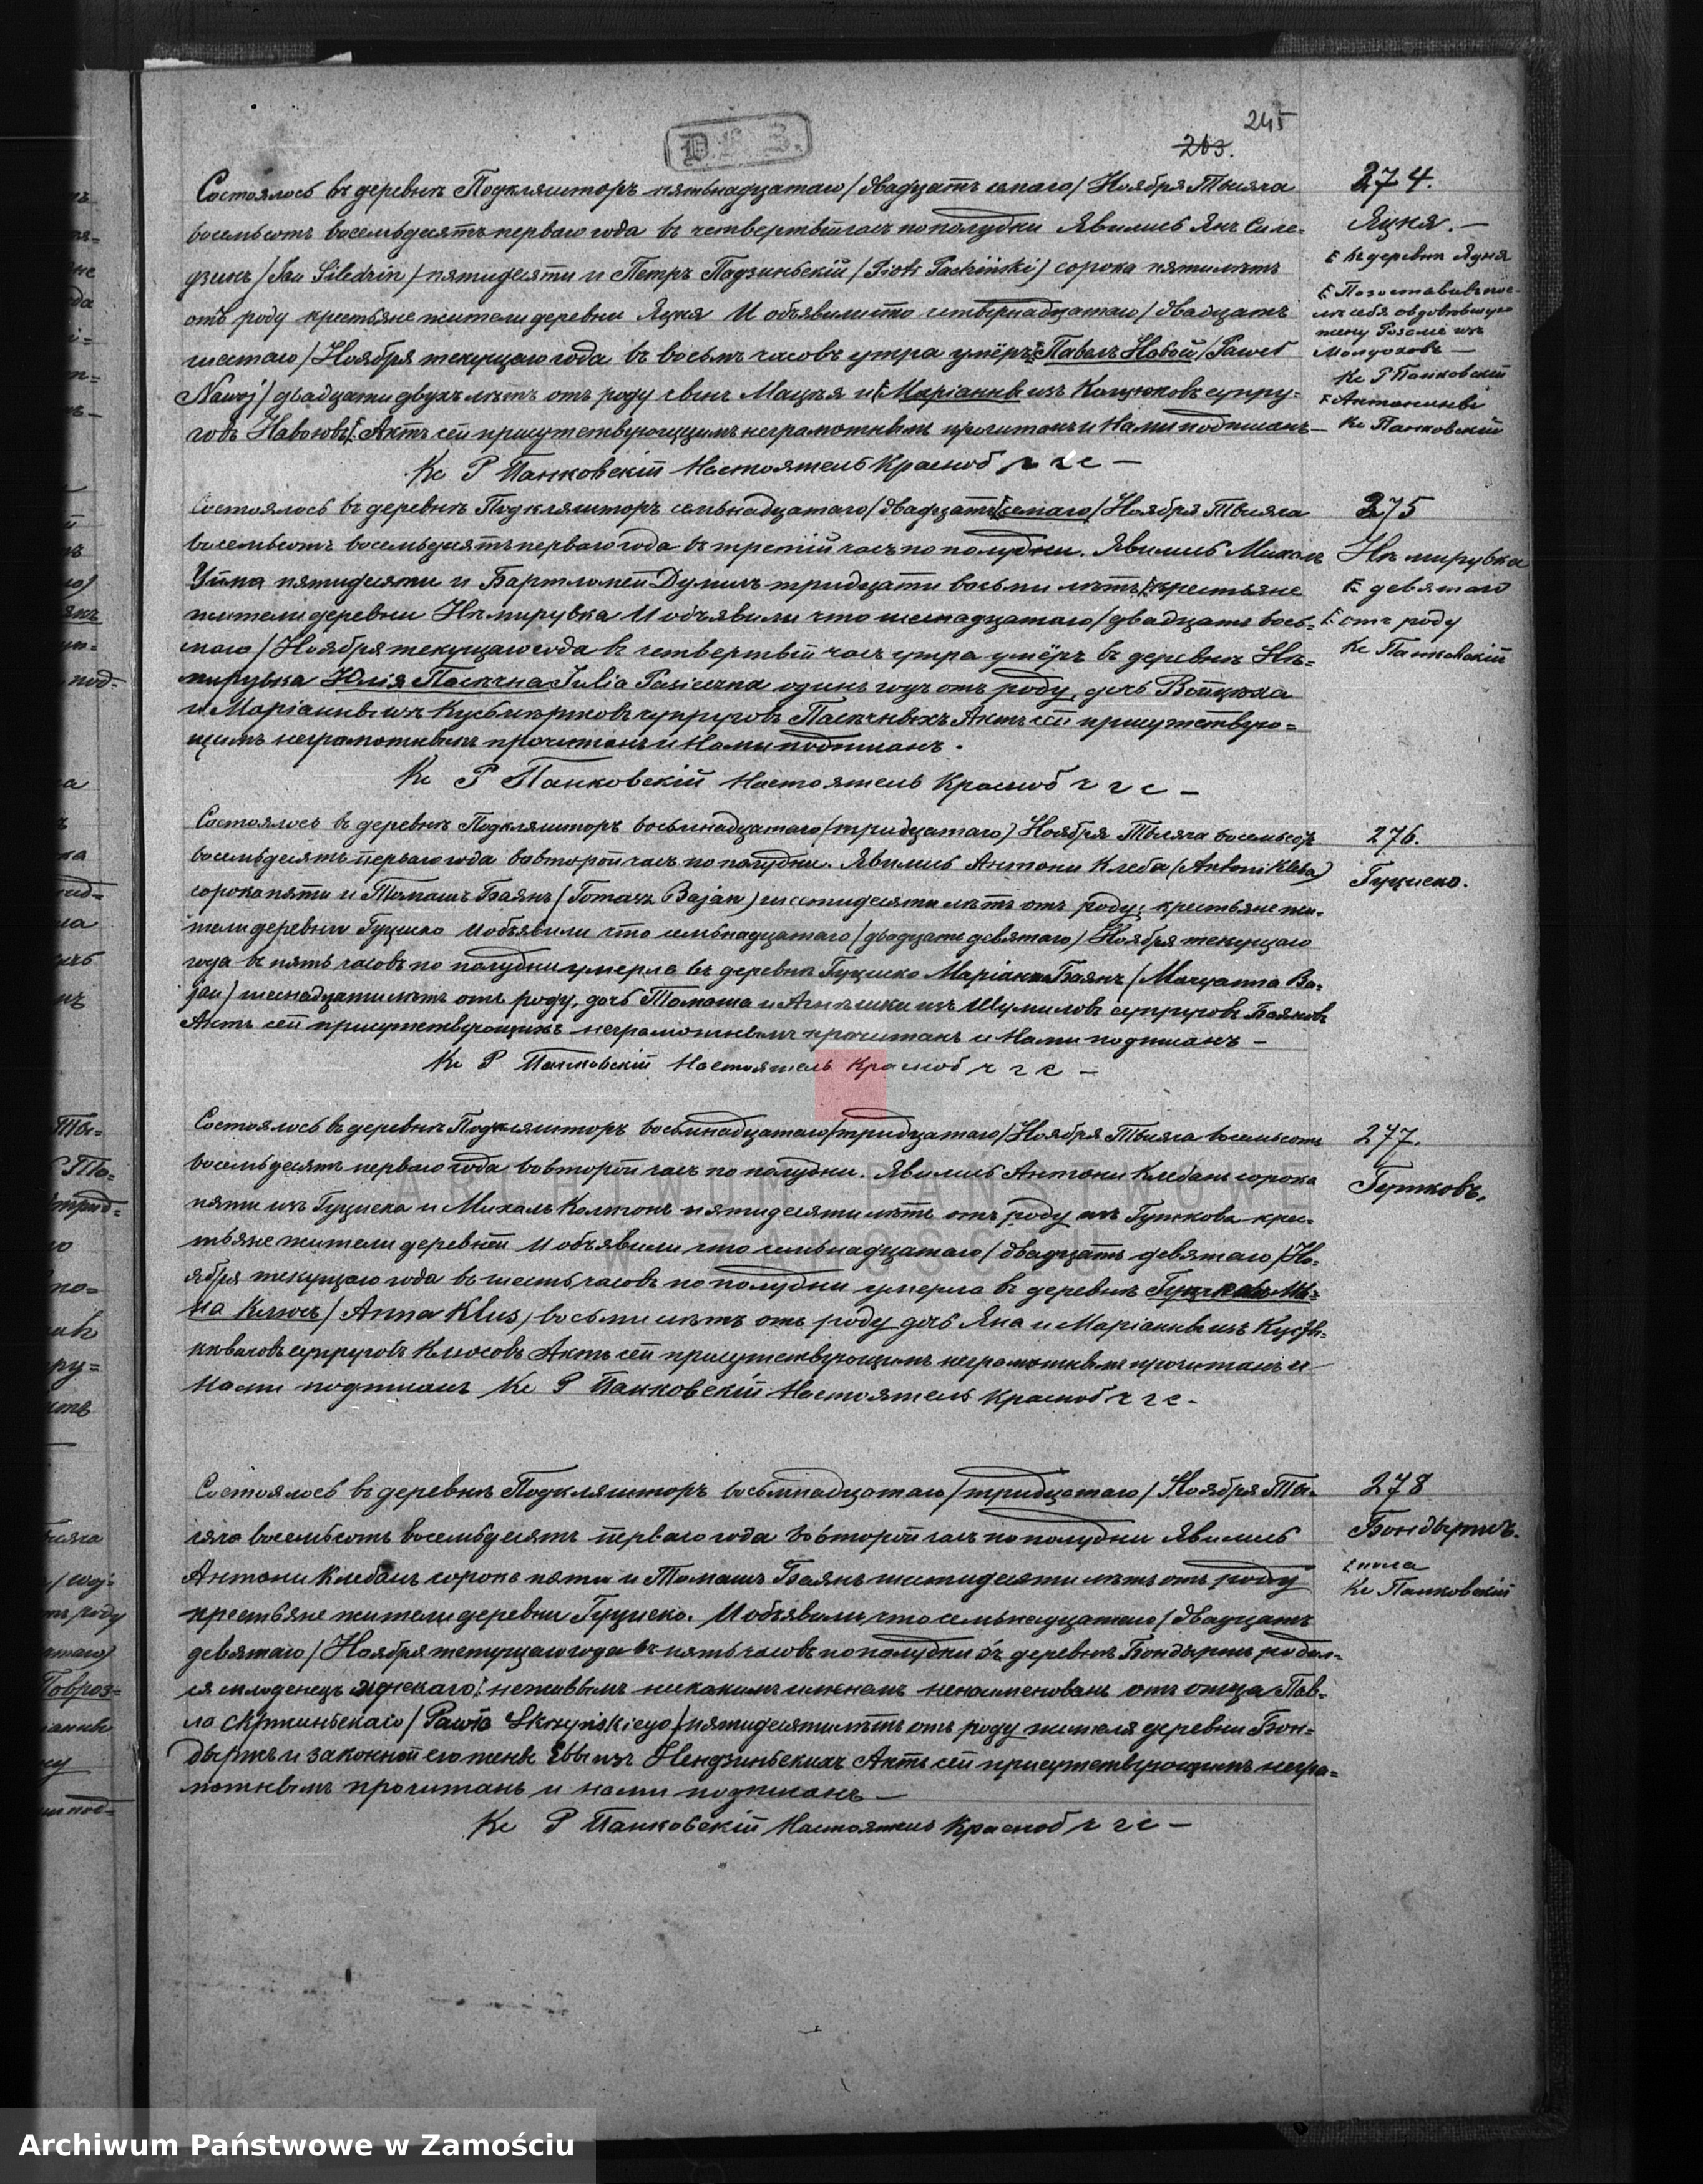 245
263.
D. F. 3.
Состоялось въ деревнѣ Подкляшторъ пятьнадцатаго / двадцать / Ноября Тысяча
восемьсотъ восемьдесятъ перваго года въ четвертый часъ пополудни Явились Янъ Силе-
дзинъ / Jan Siledzin / пятидесяти и Петръ / Piotr / сорока пяти лѣтъ
отъ роду крестьяне жители деревни Яцня И объявили что четвернадцатаго / двадцать
шестаго / Ноября текущаго года въ восемь часовъ утра умёръ Павелъ Навой / Paweł
Nawój / двадцати двухъ лѣтъ отъ роду сынъ Мацѣя и Маріанны изъ супру-
говъ Навоювъ Актъ сей присутствующимъ неграмотнымъ прочитанъ и Нами подписанъ —
Кс Р Панковскій Настоятель Красноб ч г с —
274.
Яцня. —
въ деревнѣ Яцня
Позоставивъ пос-
лѣ себя овдовѣвшую
жену Розалію изъ
Кс Р Панковскій
Антонины
Кс Панковскій
Состоялось въ деревнѣ Подкляшторъ семьнадцатаго / двадцать / Ноября Тысяча
восемьсотъ восемьдесятъ перваго года въ третій часъ по полудни. Явились Михалъ
пятидесяти и Бартломей тридцати восьми лѣтъ крестьяне
жители деревни Нѣмирувка И объявили что шестнадцатаго / двадцать вось-
маго / Ноября текущаго года въ четвертый часъ утра умёръ въ деревнѣ Нѣ-
мирувка Юлія Пасѣчна Julia Pasieczna одинъ годъ отъ роду, дочь Войцѣха
и Маріанны изъ супруговъ Пасѣчныхъ Актъ сей присутствую-
щимъ неграмотнымъ прочитанъ и Нами подписанъ.
Кс Р Панковскій Настоятель Красноб ч г с —
275
Нѣмирувка
девятаго
отъ роду
Кс Панковскій
Состоялось въ деревнѣ Подкляшторъ восьмнадцатаго / тридцатаго / Ноября Тысяча восемьсотъ
восемьдесятъ перваго года во второй часъ по полудни. Явились Антони Клеба (Antoni Kleba)
сорока пяти и Томашъ Баянъ (Tomasz Bajan) шестидесяти лѣтъ отъ роду, крестьяне жи-
тели деревни Гуциско И объявили что семьнадцатаго / двадцать девятаго / Ноября текущаго
года въ пять часовъ по полудни умерла въ деревнѣ Гуциско Маріанна Баянъ (Maryanna Ba-
jan) шеснадцати лѣтъ отъ роду, дочь Томаша и Агнѣшки изъ Шумиловъ супруговъ Баяновъ
Актъ сей присутствующимъ неграмотнымъ прочитанъ и Нами подписанъ —
Кс Р Панковскій Настоятель Красноб ч г с —
276.
Гуциско.
Состоялось въ деревнѣ Подкляшторъ восьмнадцатаго / тридцатаго / Ноября Тысяча восемьсотъ
восемьдесятъ перваго года во второй часъ по полудни. Явились Антони Клебанъ сорока
пяти изъ Гуциска и Михалъ пятидесяти лѣтъ отъ роду изъ Гуткова крес-
тьяне жители деревней И объявили что семьнадцатаго / двадцать девятаго / Но-
ября текущаго года въ шесть часовъ по полудни умерла въ деревнѣ
на Клюсъ / Anna Klus / восьми лѣтъ отъ роду дочь Яна и Маріанны изъ
супруговъ Клюсовъ Актъ сей присутствующимъ неграмотнымъ прочитанъ и
Нами подписанъ Кс Р Панковскій Настоятель Красноб ч г с —
277.
Гутковъ.
Состоялось въ деревнѣ Подкляшторъ восьмнадцатаго / тридцатаго / Ноября Ты-
сяча восемьсотъ восемьдесятъ перваго года во второй часъ по полудни Явились
Антони Клебанъ сорока пяти и Томашъ Баянъ шестидесяти лѣтъ отъ роду
крестьяне жители деревни Гуциско. И объявили что семьнадцатаго / двадцать
девятаго / Ноября текущаго года въ пять часовъ по полудни въ деревнѣ Бондыржъ родил-
ся младенецъ женскаго неживымъ никакимъ именемъ ненаименованъ отъ отца Пав-
ла Скржиньскаго / Pawła Skrzyńskiego / пятидесяти лѣтъ отъ роду жителя деревни Бон-
дыржъ и законной его жены Евы изъ Нендзиньскихъ Актъ сей присутствующимъ негра-
мотнымъ прочитанъ и нами подписанъ —
Кс Р Панковскій Настоятель Красноб ч г с —
278
Бондыржъ.
пола
Кс Панковскій
ARCHIWUM PAŃSTWOWE
W ZAMOŚCIU
Archiwum Państwowe w Zamościu